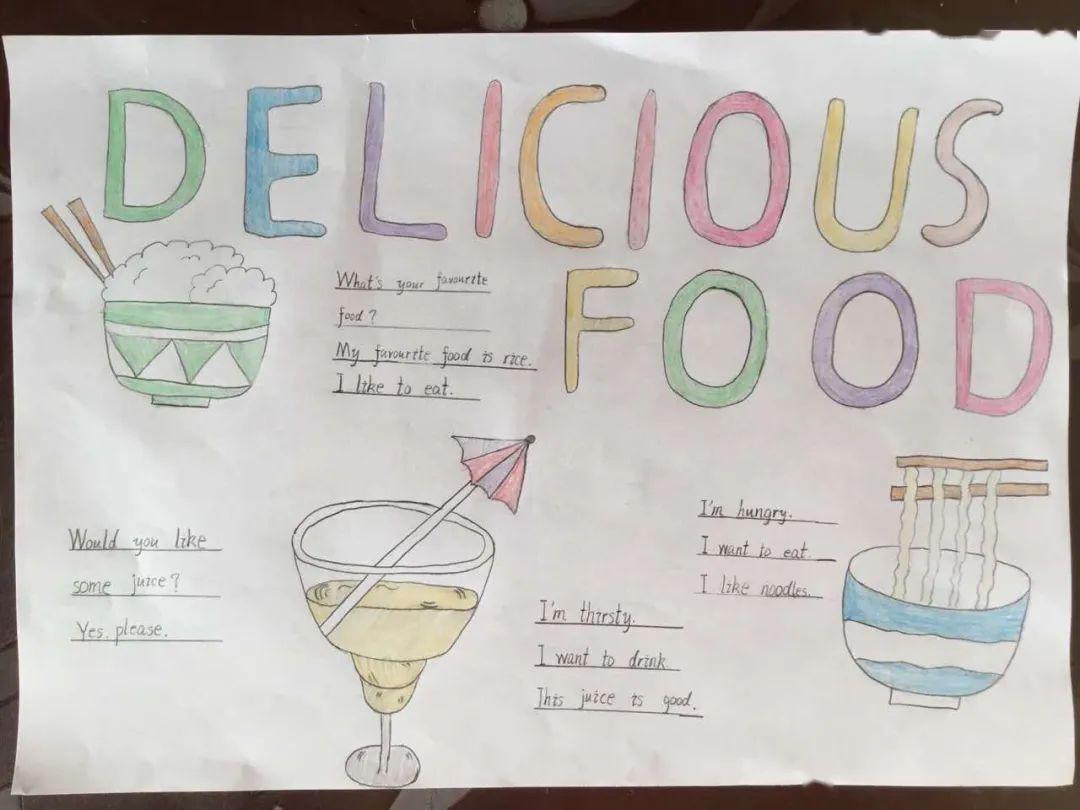 DELICIOUS
FOOD
What's your favourite
food?
My favourite food is rice.
I like to eat.
Would you like
some juice?
Yes, please.
I'm hungry.
I want to eat.
I like noodles.
I'm thirsty.
I want to drink.
This juice is good.